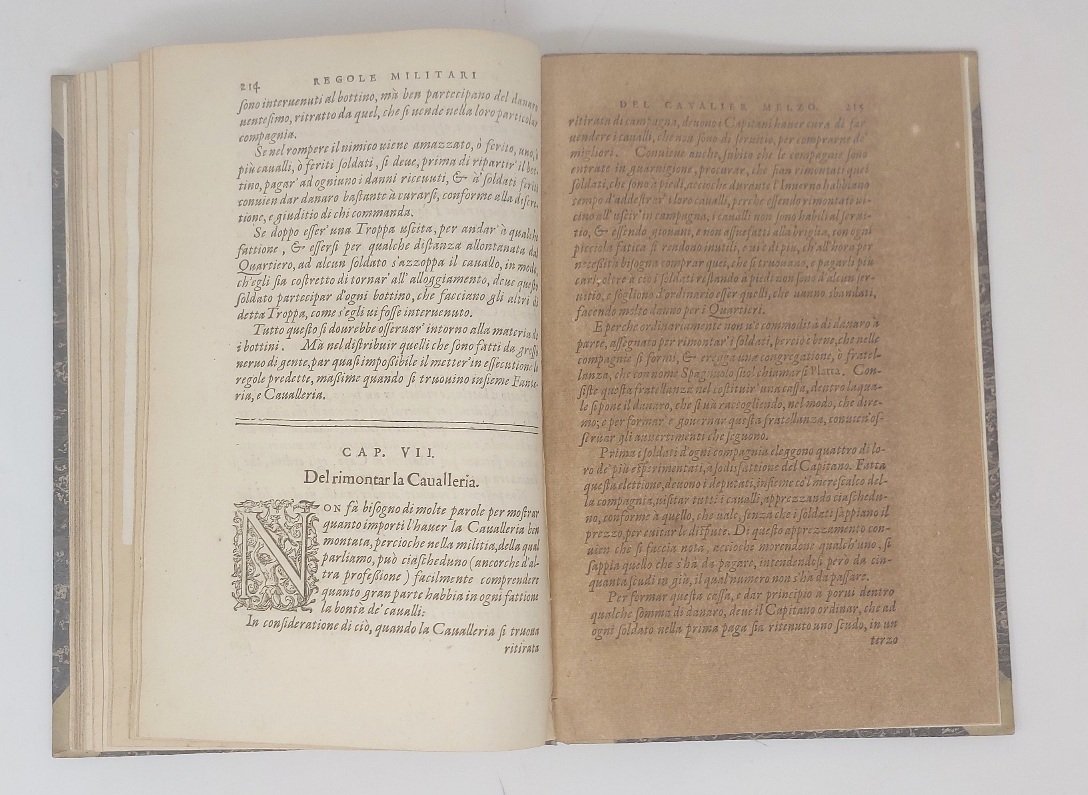 214 REGOLE MILITARI
sono interuenuti al bottino, mà ben partecipano del danaro
uentesimo, ritratto da quel, che si uende nella loro particolar
compagnia.
Se nel rompere il nimico uiene amazzato, ò ferito, uno, ò
più caualli, ò feriti soldati, si deue, prima di ripartir' il bot-
tino, pagar' ad ogniuno i danni riceuuti, & à' soldati feriti
conuien dar danaro bastante à curarsi, conforme alla discre-
tione, e giuditio di chi commanda.
Se doppo esser' una Troppa uscita, per andar' à qualche
fattione, & essersi per qualche distanza allontanata dal
Quartiero, ad alcun soldato s'azzoppa il cauallo, in modo,
ch'egli sia costretto di tornar' all' alloggiamento, deue questo
soldato partecipar d'ogni bottino, che facciano gli altri di
detta Troppa, come s'egli ui fosse interuenuto.
Tutto questo si dourebbe osseruar' intorno alla materia de
i bottini. Mà nel distribuir quelli che sono fatti da grosso
neruo di gente, par quasi impossibile il metter' in essecutione le
regole predette, massime quando si truouino insieme Fante-
ria, e Caualleria.
CAP. VII.
Del rimontar la Caualleria.
NON fà bisogno di molte parole per mostrar
quanto importi l hauer la Caualleria ben
montata, percioche nella militia, della qual
parliamo, può ciascheduno (ancorche d'al-
tra professione) facilmente comprendere
quanto gran parte habbia in ogni fattione
la bontà de' caualli:
In consideratione di ciò, quando la Caualleria si truoua
ritirata
DEL CAVALIER MELZO. 215
ritirata di campagna, deuono i Capitani hauer cura di far
uendere i caualli, che non sono di seruitio, per comprarne de'
migliori. Conuiene anche, subito che le compagnie sono
entrate in guarnigione, procurar, che sian rimontati quei
soldati, che sono à piedi, accioche durante l'Inuerno habbiano
tempo d'addestrar' i loro caualli, perche essendo rimontati ui-
cino all'uscir' in campagna, i caualli non sono habili al serui-
tio, & essendo giouani, e non assuefatti alla briglia, con ogni
picciola fatica si rendono inutili, e ui è di più, ch'all'hora per
necessità bisogna comprar quei, che si truouano, e pagarli più
cari, oltre à ciò i soldati restando à piedi non sono d'alcun ser-
uitio, e sogliono d'ordinario esser quelli, che uanno sbandati,
facendo molto danno per i Quartieri.
E perche ordinariamente non u'è commodità di danaro à
parte, assegnato per rimontar' i soldati, perciò è bene, che nelle
compagnie si formi, & eregga una congregatione, ò fratel-
lanza, che con nome Spagnuolo suol chiamarsi Platta. Con-
siste questa fratellanza nel costituir' una cassa, dentro la qua-
le si pone il danaro, che si uà raccogliendo, nel modo, che dire-
mo; e per formar, e gouernar questa fratellanza, conuien'os-
seruar gli auuertimenti che seguono.
Prima i soldati d'ogni compagnia eleggono quattro di lo-
ro de' più esperimentati, à sodisfattione del Capitano. Fatta
questa elettione, deuono i deputati, insieme co'l merescalco del-
la compagnia, uisitar tutti i caualli, apprezzando ciaschedu-
no, conforme à quello, che uale, senza che i soldati sappiano il
prezzo, per euitar le dispute. Di questo apprezzamento con-
uien che si faccia nota, accioche morendone qualch'uno, si
sappia quello che s'hà da pagare, intendendosi però da cin-
quanta scudi in giù, il qual numero non s'hà da passare.
Per formar questa cassa, e dar principio à porui dentro
qualche somma di danaro, deue il Capitano ordinar, che ad
ogni soldato nella prima paga sia ritenuto uno scudo, in un
terzo